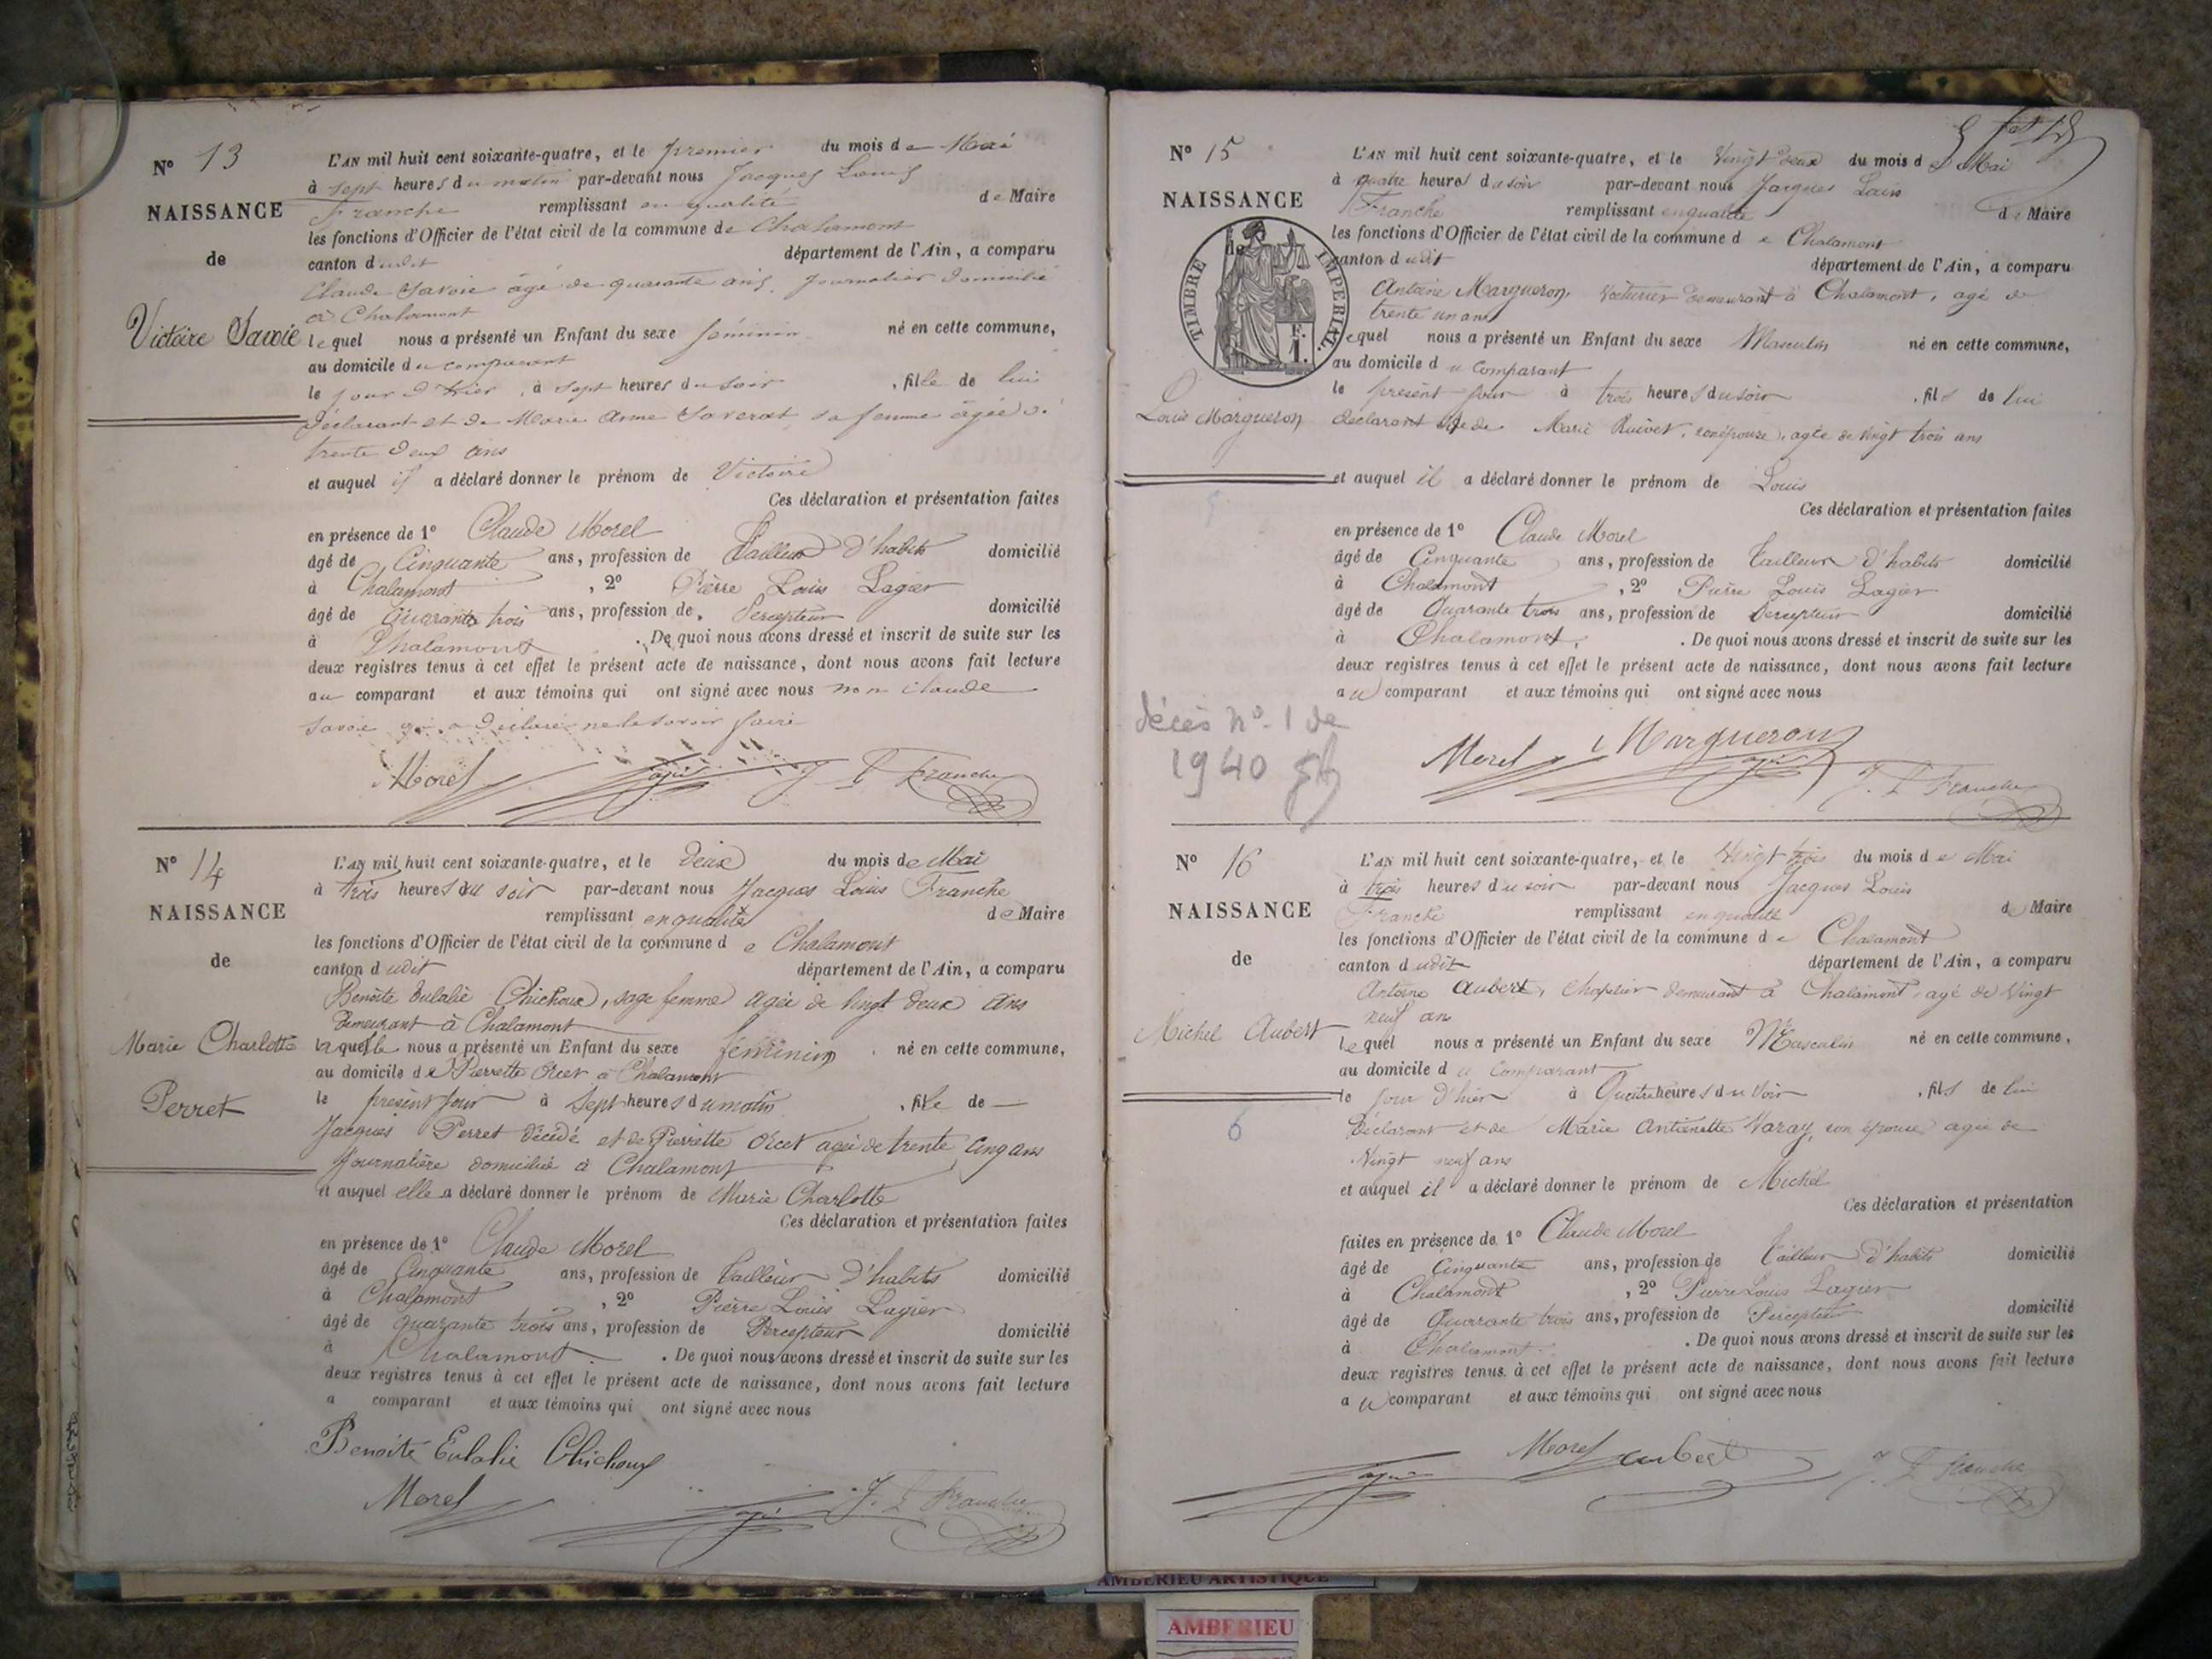 N° 13
NAISSANCE
de
Victoire Savoie
L'AN mil huit cent soixante-quatre, et le premier du mois de Mai
à sept heures du matin par-devant nous Jacques Louis
Franche remplissant en qualité de Maire
les fonctions d'Officier de l'état civil de la commune de Chalamont
canton dudit département de l'Ain, a comparu
Claude Savoie âgé de quarante ans, journalier domicilié
à Chalamont
lequel nous a présenté un Enfant du sexe féminin né en cette commune,
au domicile du comparant
le jour d'hier, à sept heures du soir, fille de lui
déclarant et de Marie Anne Saverat sa femme âgée de
trente deux ans
et auquel il a déclaré donner le prénom de Victoire
Ces déclaration et présentation faites
en présence de 1° Claude Morel
âgé de Cinquante ans, profession de Tailleur d'habits domicilié
à Chalamont, 2° Pierre Louis Lagier
âgé de quarante trois ans, profession de Percepteur domicilié
à Chalamont. De quoi nous avons dressé et inscrit de suite sur les
deux registres tenus à cet effet le présent acte de naissance, dont nous avons fait lecture
au comparant et aux témoins qui ont signé avec nous non Claude
Savoie qui a déclaré ne le savoir faire
Morel Lagier J. L. Franche
N° 14
NAISSANCE
de
Marie Charlotte
Perret
L'AN mil huit cent soixante-quatre, et le Deux du mois de Mai
à trois heures du soir par-devant nous Jacques Louis Franche
remplissant en qualité de Maire
les fonctions d'Officier de l'état civil de la commune de Chalamont
canton dudit département de l'Ain, a comparu
Benoite Eulalie Chichoux, sage femme agée de vingt deux ans
demeurant à Chalamont
laquelle nous a présenté un Enfant du sexe féminin né en cette commune,
au domicile de Pierrette Orcet a Chalamont
le présent jour à Sept heures du matin, fille de
Jacques Perret décédé et de Pierrette Orcet agée de trente cinq ans
journalière domiciliée à Chalamont
et auquel elle a déclaré donner le prénom de Marie Charlotte
Ces déclaration et présentation faites
en présence de 1° Claude Morel
âgé de Cinquante ans, profession de Tailleur d'habits domicilié
à Chalamont, 2° Pierre Louis Lagier
âgé de quarante trois ans, profession de Percepteur domicilié
à Chalamont. De quoi nous avons dressé et inscrit de suite sur les
deux registres tenus à cet effet le présent acte de naissance, dont nous avons fait lecture
a comparant et aux témoins qui ont signé avec nous
Benoite Eulalie Chichoux
Morel Lagier J. L. Franche
N° 15
NAISSANCE
de
TIMBRE IMPERIAL
F. 1.
Louis Margueron
L'AN mil huit cent soixante-quatre, et le Vingt deux du mois de Mai
à quatre heures du soir par-devant nous Jacques Louis
Franche remplissant en qualité de Maire
les fonctions d'Officier de l'état civil de la commune de Chalamont
canton dudit département de l'Ain, a comparu
Antoine Margueron, voiturier demeurant à Chalamont, agé de
trente un ans
lequel nous a présenté un Enfant du sexe Masculin né en cette commune,
au domicile du Comparant
le présent jour à trois heures du soir, fils de lui
déclarant et de Marie Ruivet, son épouse, agée de vingt trois ans
et auquel il a déclaré donner le prénom de Louis
Ces déclaration et présentation faites
en présence de 1° Claude Morel
âgé de Cinquante ans, profession de Tailleur d'habits domicilié
à Chalamont, 2° Pierre Louis Lagier
âgé de Quarante trois ans, profession de Percepteur domicilié
à Chalamont. De quoi nous avons dressé et inscrit de suite sur les
deux registres tenus à cet effet le présent acte de naissance, dont nous avons fait lecture
au comparant et aux témoins qui ont signé avec nous
décès n° 1 de
1940
Morel Margueron Lagier J. L. Franche
N° 16
NAISSANCE
de
Michel Aubert
6
L'AN mil huit cent soixante-quatre, et le Vingt trois du mois de Mai
à trois heures du soir par-devant nous Jacques Louis
Franche remplissant en qualité de Maire
les fonctions d'Officier de l'état civil de la commune de Chalamont
canton dudit département de l'Ain, a comparu
Antoine Aubert, Chapelier demeurant à Chalamont, agé de Vingt
neuf ans
lequel nous a présenté un Enfant du sexe Masculin né en cette commune,
au domicile du Comparant
le jour d'hier à Quatre heures du soir, fils de lui
Déclarant et de Marie Antoinette Varay, son épouse agée de
Vingt neuf ans
et auquel il a déclaré donner le prénom de Michel
Ces déclaration et présentation
faites en présence de 1° Claude Morel
âgé de Cinquante ans, profession de Tailleur d'habits domicilié
à Chalamont, 2° Pierre Louis Lagier
âgé de Quarante trois ans, profession de Percepteur domicilié
à Chalamont. De quoi nous avons dressé et inscrit de suite sur les
deux registres tenus à cet effet le présent acte de naissance, dont nous avons fait lecture
au comparant et aux témoins qui ont signé avec nous
Morel Aubert
Lagier J. L. Franche
AMBERIEU ARTISTIQUE
AMBERIEU